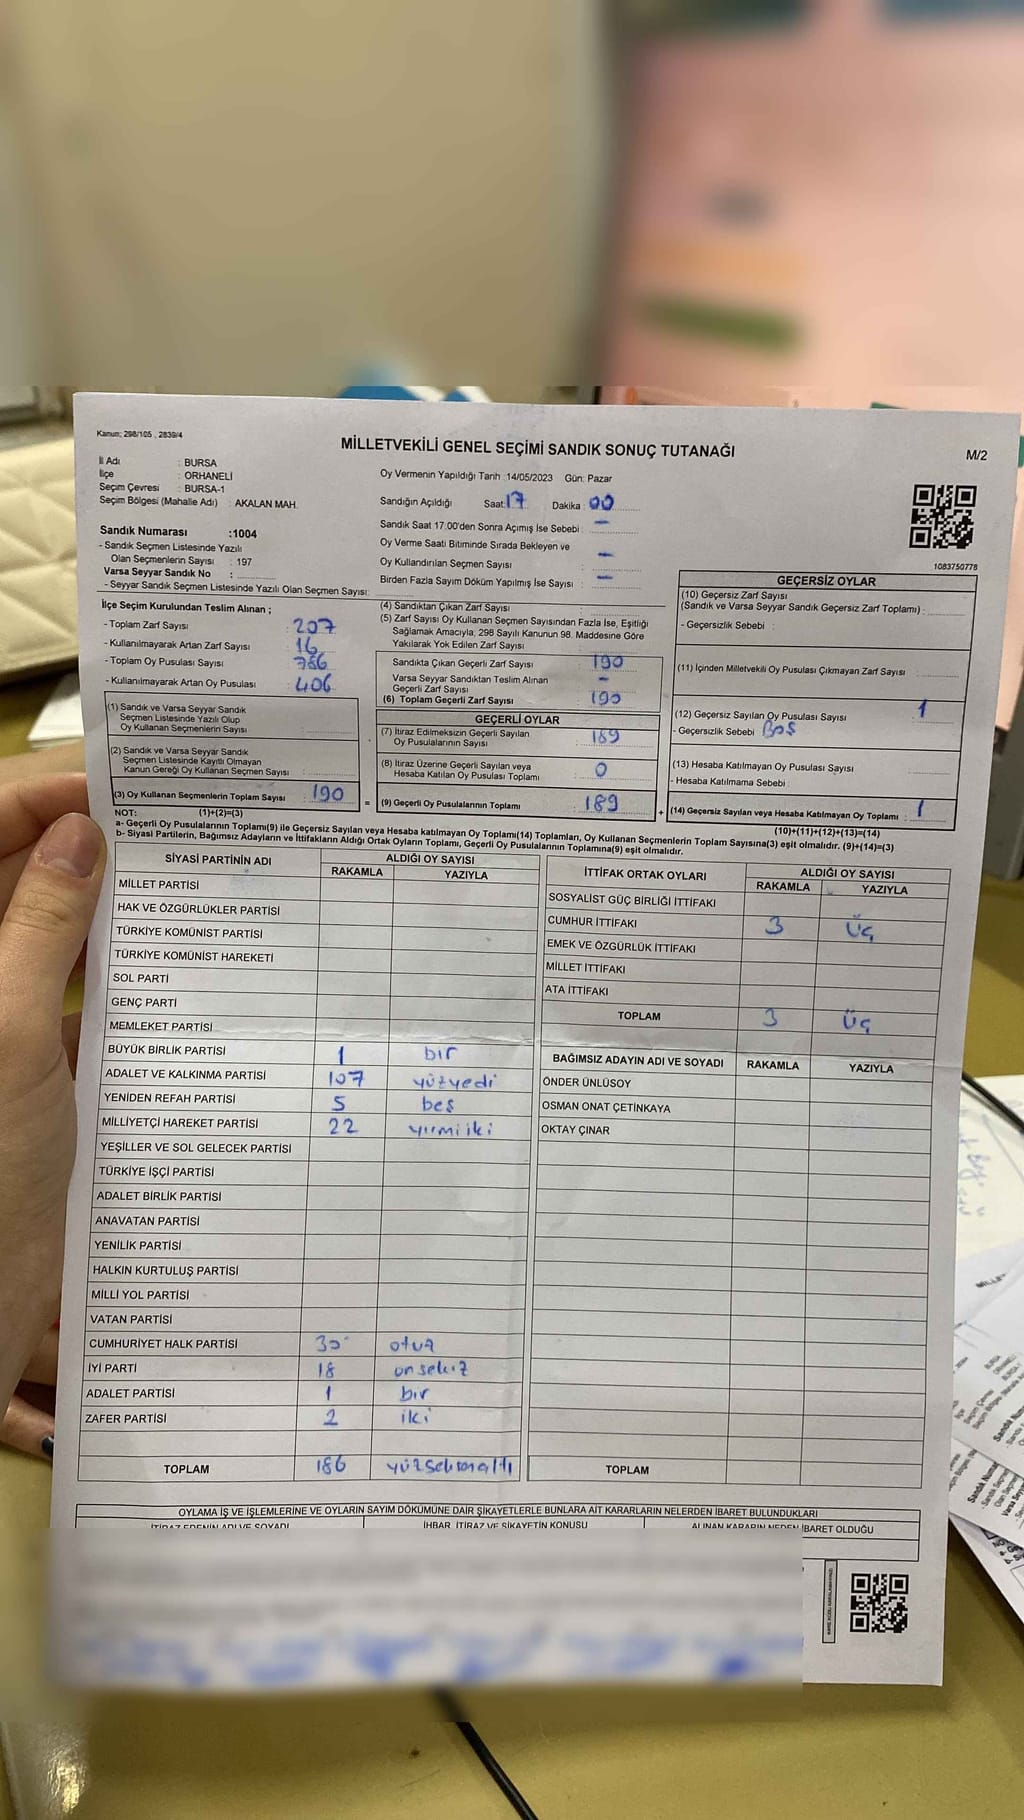 Kanun; 298/105 , 2839/4
MİLLETVEKİLİ GENEL SEÇİMİ SANDIK SONUÇ TUTANAĞI
M/2
İl Adı : BURSA
İlçe : ORHANELİ
Seçim Çevresi : BURSA-1
Seçim Bölgesi (Mahalle Adı) : AKALAN MAH.
Oy Vermenin Yapıldığı Tarih :14/05/2023 Gün: Pazar
Sandığın Açıldığı Saat: 17 Dakika : 00
Sandık Saat 17:00'den Sonra Açımış İse Sebebi : —
Oy Verme Saati Bitiminde Sırada Bekleyen ve
Oy Kullandırılan Seçmen Sayısı : —
Birden Fazla Sayım Döküm Yapılmış İse Sayısı : —
1083750778
Sandık Numarası :1004
- Sandık Seçmen Listesinde Yazılı
Olan Seçmenlerin Sayısı : 197
Varsa Seyyar Sandık No :
- Seyyar Sandık Seçmen Listesinde Yazılı Olan Seçmen Sayısı:
İlçe Seçim Kurulundan Teslim Alınan ;
- Toplam Zarf Sayısı : 207
- Kullanılmayarak Artan Zarf Sayısı : 16
- Toplam Oy Pusulası Sayısı : 786
- Kullanılmayarak Artan Oy Pusulası : 406
(1) Sandık ve Varsa Seyyar Sandık
Seçmen Listesinde Yazılı Olup
Oy Kullanan Seçmenlerin Sayısı :
(2) Sandık ve Varsa Seyyar Sandık
Seçmen Listesinde Kayıtlı Olmayan
Kanun Gereği Oy Kullanan Seçmen Sayısı :
(3) Oy Kullanan Seçmenlerin Toplam Sayısı : 190
(1)+(2)=(3)
(4) Sandıktan Çıkan Zarf Sayısı :
(5) Zarf Sayısı Oy Kullanan Seçmen Sayısından Fazla İse, Eşitliği
Sağlamak Amacıyla; 298 Sayılı Kanunun 98. Maddesine Göre
Yakılarak Yok Edilen Zarf Sayısı :
Sandıkta Çıkan Geçerli Zarf Sayısı : 190
Varsa Seyyar Sandıktan Teslim Alınan
Geçerli Zarf Sayısı : —
(6) Toplam Geçerli Zarf Sayısı : 190
GEÇERLİ OYLAR
(7) İtiraz Edilmeksizin Geçerli Sayılan
Oy Pusulalarının Sayısı : 189
(8) İtiraz Üzerine Geçerli Sayılan veya
Hesaba Katılan Oy Pusulası Toplamı : 0
= (9) Geçerli Oy Pusulalarının Toplamı : 189
GEÇERSİZ OYLAR
(10) Geçersiz Zarf Sayısı
(Sandık ve Varsa Seyyar Sandık Geçersiz Zarf Toplamı) :
- Geçersizlik Sebebi :
(11) İçinden Milletvekili Oy Pusulası Çıkmayan Zarf Sayısı :
(12) Geçersiz Sayılan Oy Pusulası Sayısı : 1
- Geçersizlik Sebebi : Boş
(13) Hesaba Katılmayan Oy Pusulası Sayısı :
- Hesaba Katılmama Sebebi :
+ (14) Geçersiz Sayılan veya Hesaba Katılmayan Oy Toplamı : 1
(10)+(11)+(12)+(13)=(14)
NOT:
a- Geçerli Oy Pusulalarının Toplamı(9) ile Geçersiz Sayılan veya Hesaba katılmayan Oy Toplamı(14) Toplamları, Oy Kullanan Seçmenlerin Toplam Sayısına(3) eşit olmalıdır. (9)+(14)=(3)
b- Siyasi Partilerin, Bağımsız Adayların ve İttifakların Aldığı Ortak Oyların Toplamı, Geçerli Oy Pusulalarının Toplamına(9) eşit olmalıdır.
SİYASİ PARTİNİN ADI ALDIĞI OY SAYISI
RAKAMLA YAZIYLA
MİLLET PARTİSİ
HAK VE ÖZGÜRLÜKLER PARTİSİ
TÜRKİYE KOMÜNİST PARTİSİ
TÜRKİYE KOMÜNİST HAREKETİ
SOL PARTİ
GENÇ PARTİ
MEMLEKET PARTİSİ
BÜYÜK BİRLİK PARTİSİ 1 bir
ADALET VE KALKINMA PARTİSİ 107 yüzyedi
YENİDEN REFAH PARTİSİ 5 beş
MİLLİYETÇİ HAREKET PARTİSİ 22 yirmiiki
YEŞİLLER VE SOL GELECEK PARTİSİ
TÜRKİYE İŞÇİ PARTİSİ
ADALET BİRLİK PARTİSİ
ANAVATAN PARTİSİ
YENİLİK PARTİSİ
HALKIN KURTULUŞ PARTİSİ
MİLLİ YOL PARTİSİ
VATAN PARTİSİ
CUMHURİYET HALK PARTİSİ 30 otuz
İYİ PARTİ 18 onsekiz
ADALET PARTİSİ 1 bir
ZAFER PARTİSİ 2 iki
TOPLAM 186 yüzseksenaltı
İTTİFAK ORTAK OYLARI ALDIĞI OY SAYISI
RAKAMLA YAZIYLA
SOSYALİST GÜÇ BİRLİĞİ İTTİFAKI
CUMHUR İTTİFAKI 3 üç
EMEK VE ÖZGÜRLÜK İTTİFAKI
MİLLET İTTİFAKI
ATA İTTİFAKI
TOPLAM 3 üç
BAĞIMSIZ ADAYIN ADI VE SOYADI RAKAMLA YAZIYLA
ÖNDER ÜNLÜSOY
OSMAN ONAT ÇETİNKAYA
OKTAY ÇINAR
TOPLAM
OYLAMA İŞ VE İŞLEMLERİNE VE OYLARIN SAYIM DÖKÜMÜNE DAİR ŞİKAYETLERLE BUNLARA AİT KARARLARIN NELERDEN İBARET BULUNDUKLARI
İTİRAZ EDENİN ADI VE SOYADI İHBAR, İTİRAZ VE ŞİKAYETİN KONUSU ALINAN KARARIN NEDEN İBARET OLDUĞU